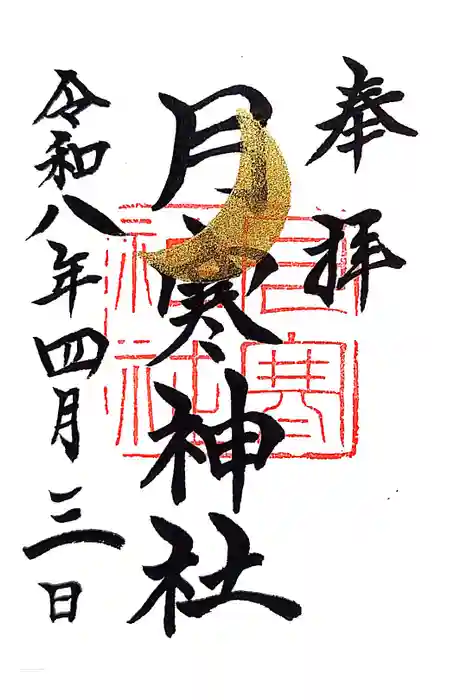 奉拝
月寒神社
月寒神社
令和八年四月三日